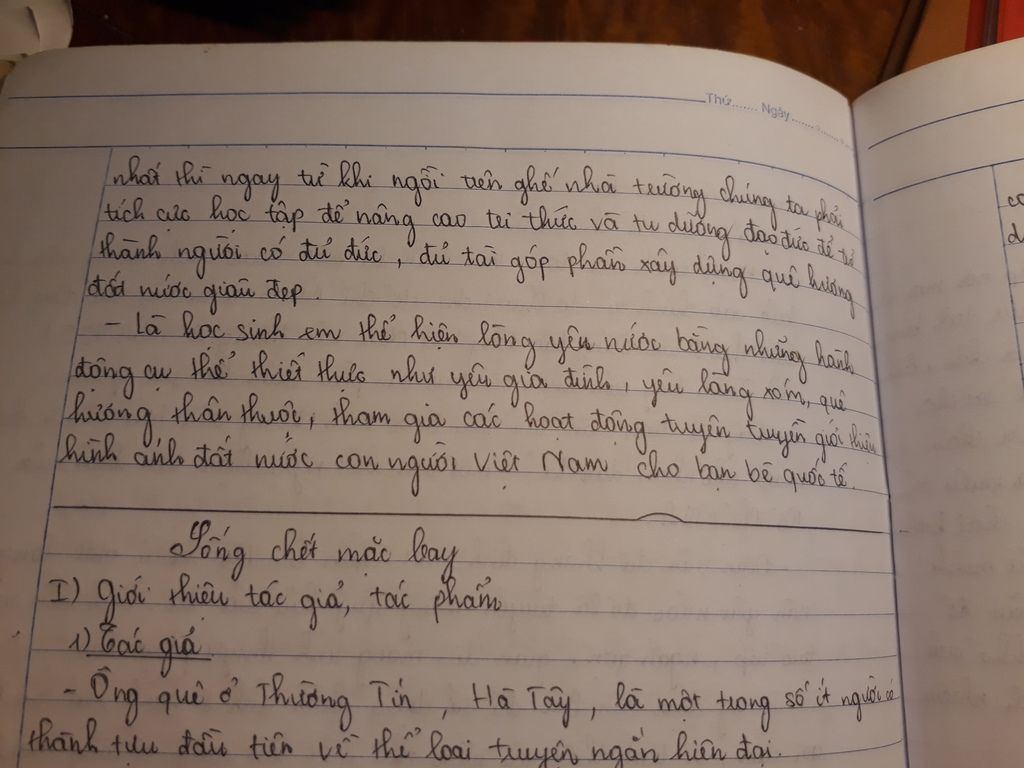 Thứ....... Ngày.............
nhất thì ngay từ khi ngồi trên ghế nhà trường chúng ta phải
tích cực học tập để nâng cao tri thức và tu dưỡng đạo đức để trở
thành người có đủ đức, đủ tài góp phần xây dựng quê hương
đất nước giàu đẹp.
- Là học sinh em thể hiện lòng yêu nước bằng những hành
động cụ thể thiết thực như yêu gia đình, yêu làng xóm, quê
hương thân thuộc, tham gia các hoạt động tuyên truyền giới thiệu
hình ảnh đất nước con người Việt Nam cho bạn bè quốc tế.
Sống chết mặc bay
I) Giới thiệu tác giả, tác phẩm
1) Tác giả
- Ông quê ở Thường Tín, Hà Tây, là một trong số ít người có
thành tựu đầu tiên về thể loại truyện ngắn hiện đại.